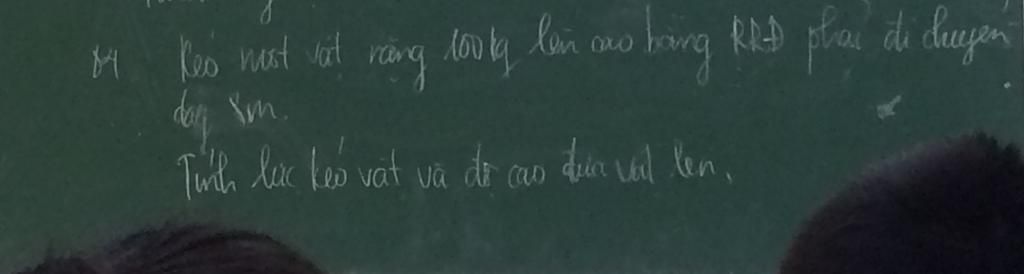 Kéo một vật nặng 100kg lên cao bằng RRĐ phải di chuyển
dây 8m.
Tính lực kéo vật và độ cao đưa vật lên.